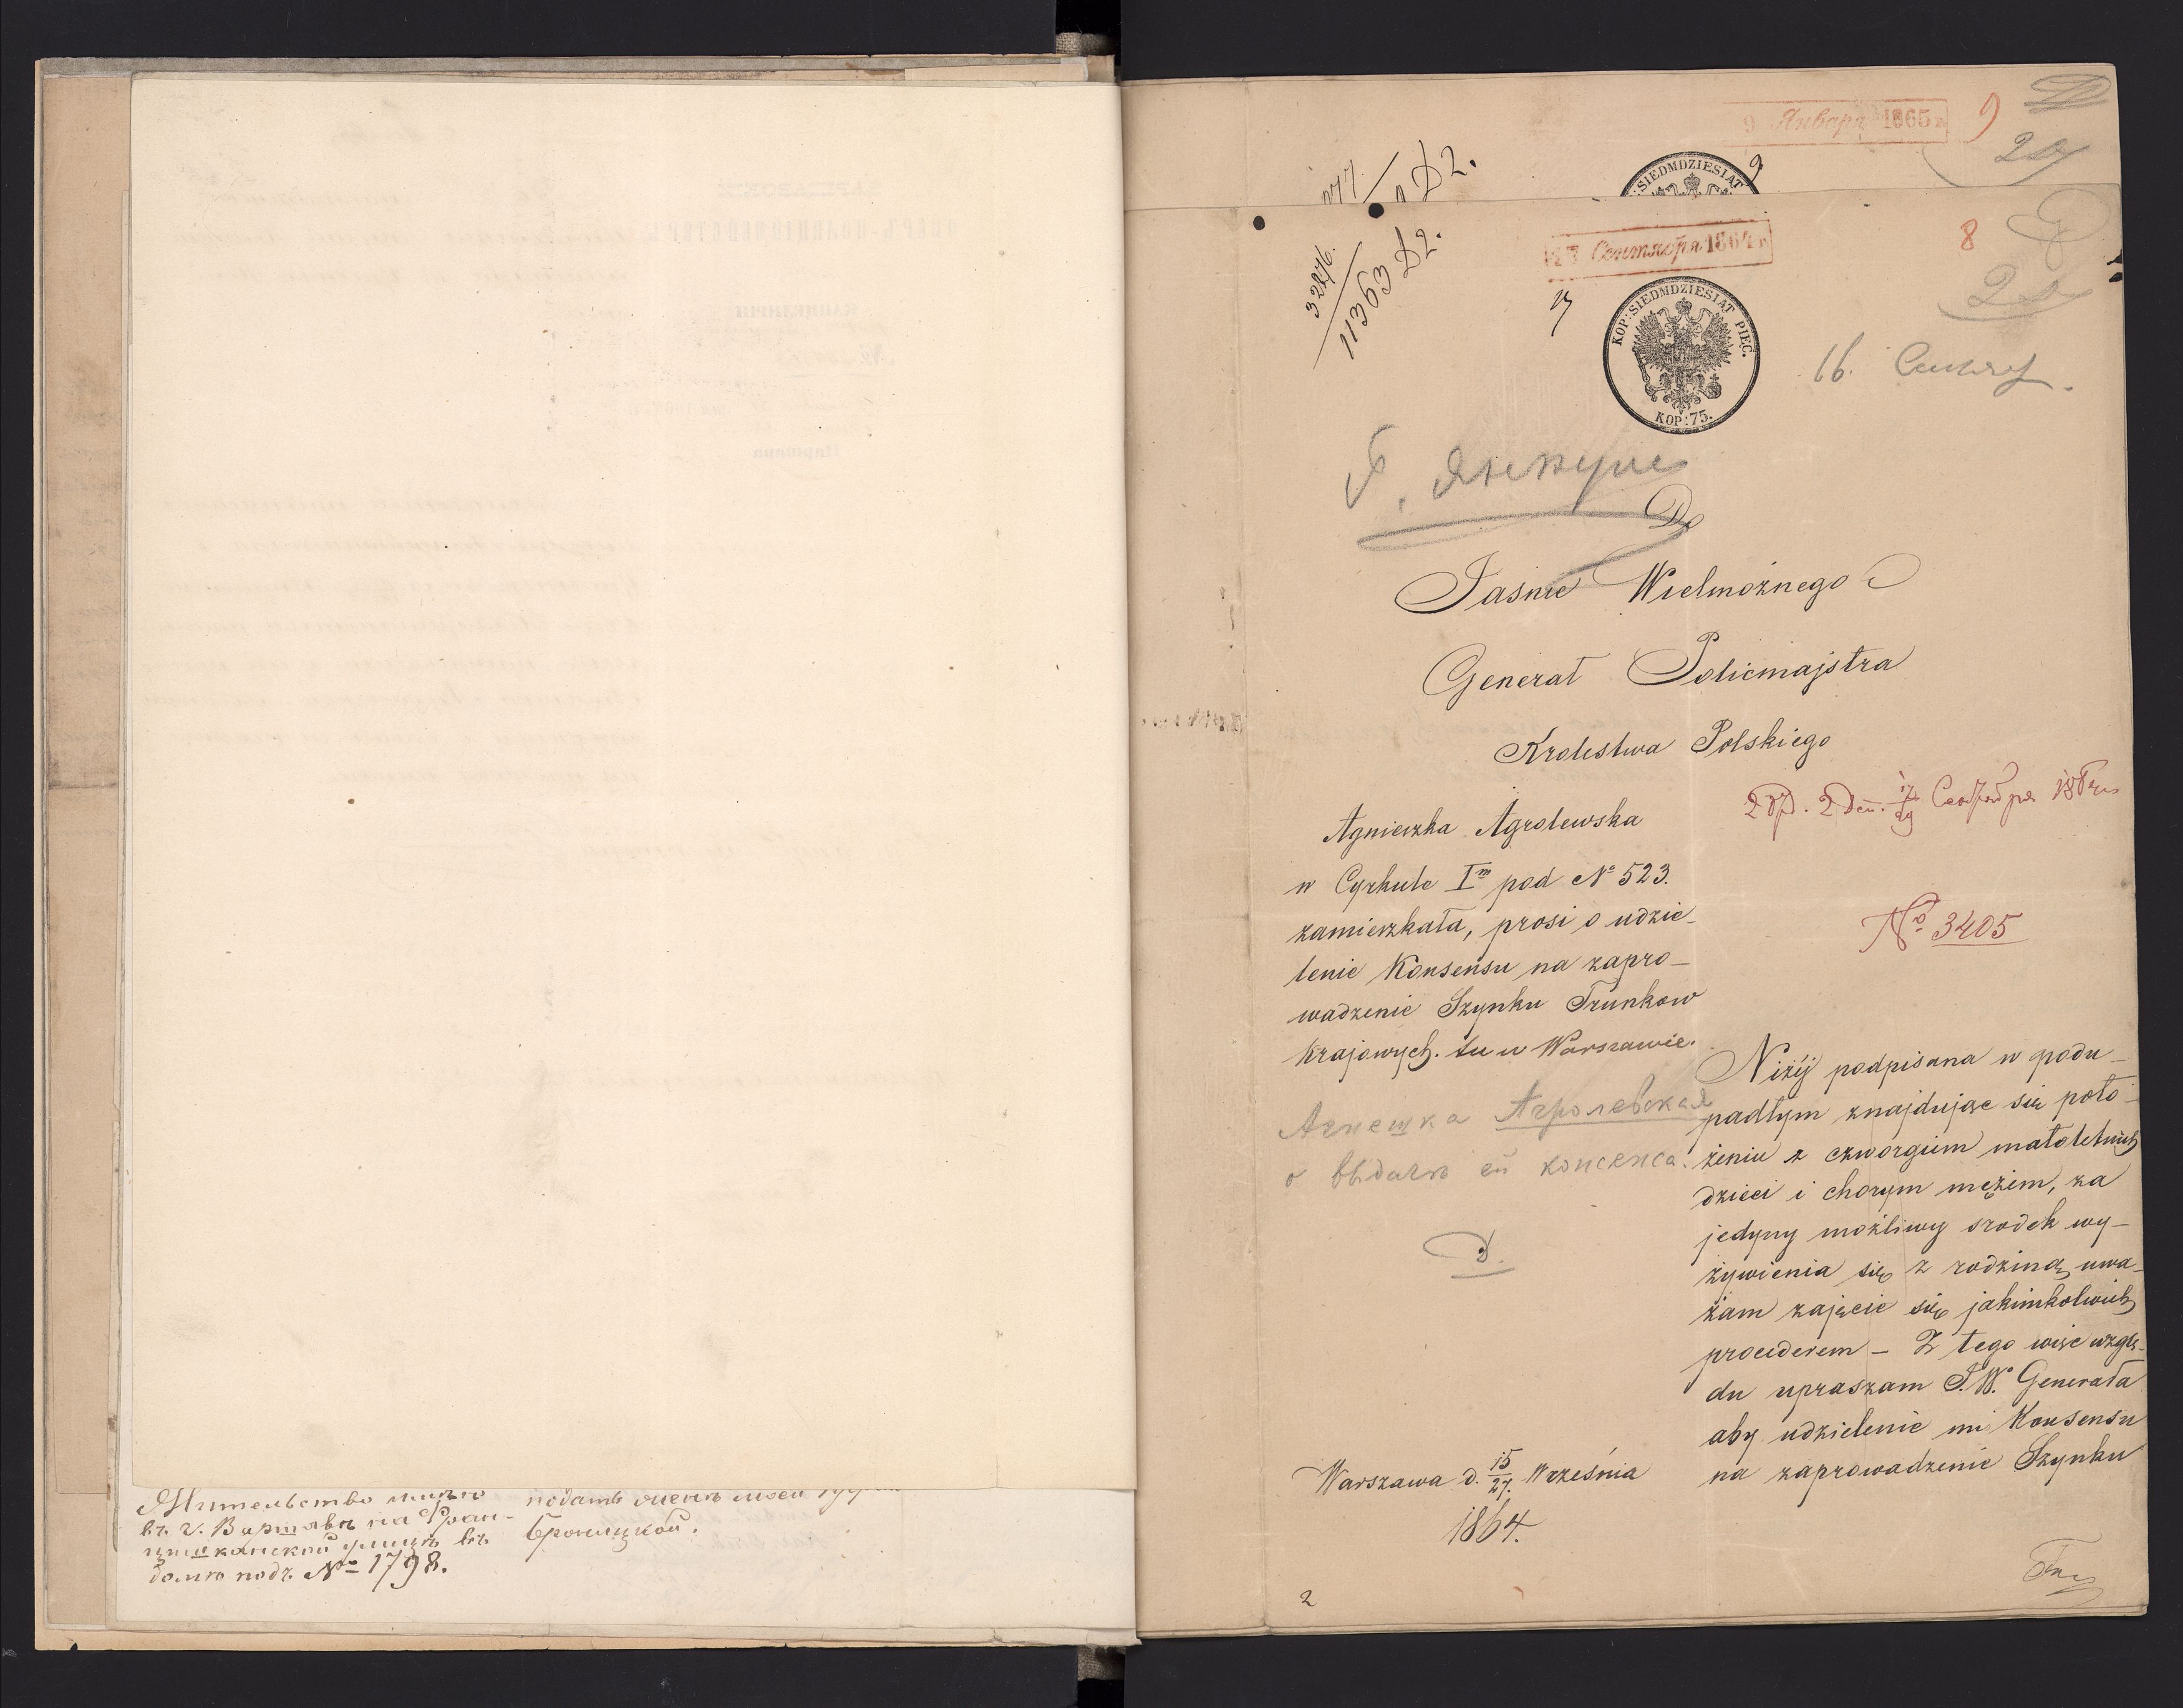 Жительство имѣю
въ г. Варшавѣ на Фран-
цишканской улицѣ въ
домѣ подъ № 1798.
подать
Броницкой.
9 Января 1865 г
9
20
277
D2.
SIEDMDZIESIAT
3276.
11363 D2.
17 Сентября 1864 г
8
20
KOP: SIEDMDZIESIAT PIĘC.
KOP: 75.
16.
Do
Jasnie Wielmożnego
Generał Policmajstra
Krolestwa Polskiego
2 Деп. 17/29 Сентября
№ 3405
Agnieszka Agrolewska
w Cyrkule I m pod № 523.
zamieszkała, prosi o udzie-
lenie Konsensu na zapro-
wadzenie Szynku Trunkow
Krajowych. tu w Warszawie.
Агнешка Агролевская
о выдачѣ ей консенса.
D.
Warszawa d. 15/27. Września
1864.
Niżéj podpisana w podu-
padłym znajdując się poło-
żeniu z czworgiem małoletnich
dzieci i chorym mężem, za
jedyny możliwy srodek wy-
żywienia się z rodziną uwa-
żam zajęcie się jakimkolwiek
procederem - Z tego więc wzglę-
du upraszam J.W. Generała
aby udzielenie mi Konsensu
na zaprowadzenie Szynku
2